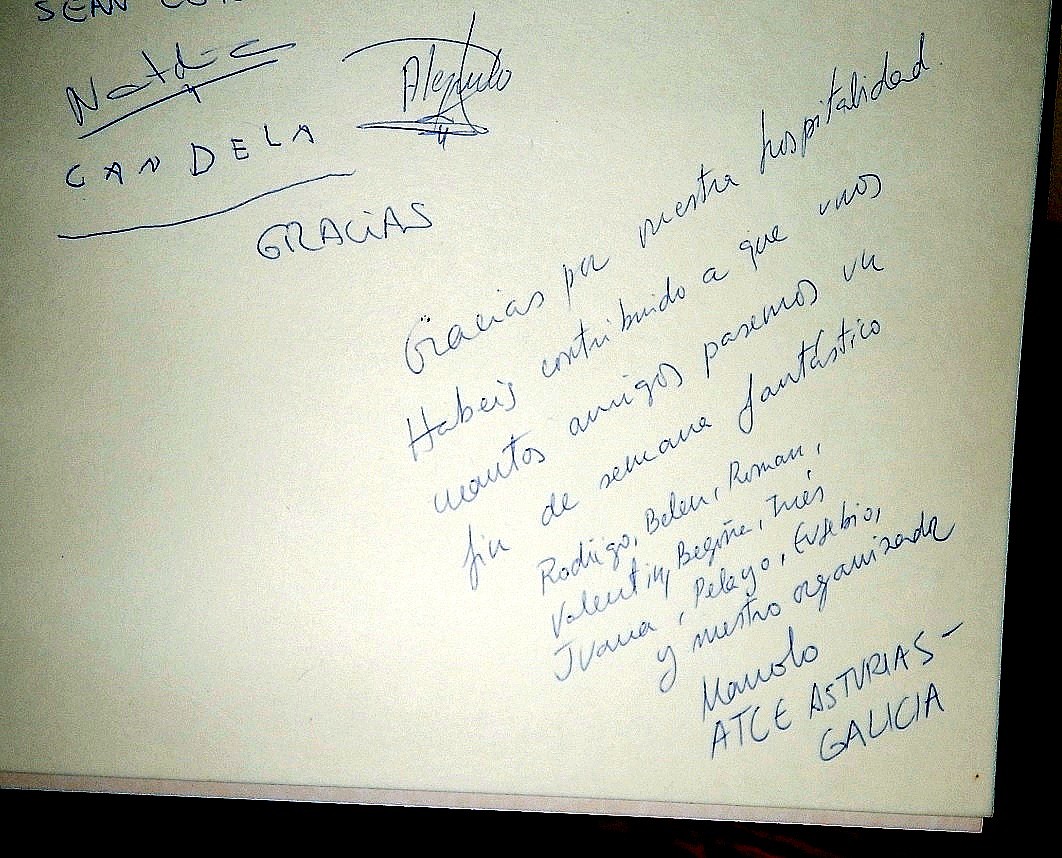 SEAN
Natalia
Alejandro
CANDELA
GRACIAS
Gracias por vuestra hospitalidad.
Habeis contribuido a que unos
cuantos amigos pasemos un
fin de semana fantástico
Rodrigo, Belen, Roman,
Valentin, Begoña, Inés
Juana, Pelayo, Eusebio,
y nuestro organizador
Manolo
ATCE ASTURIAS-
GALICIA